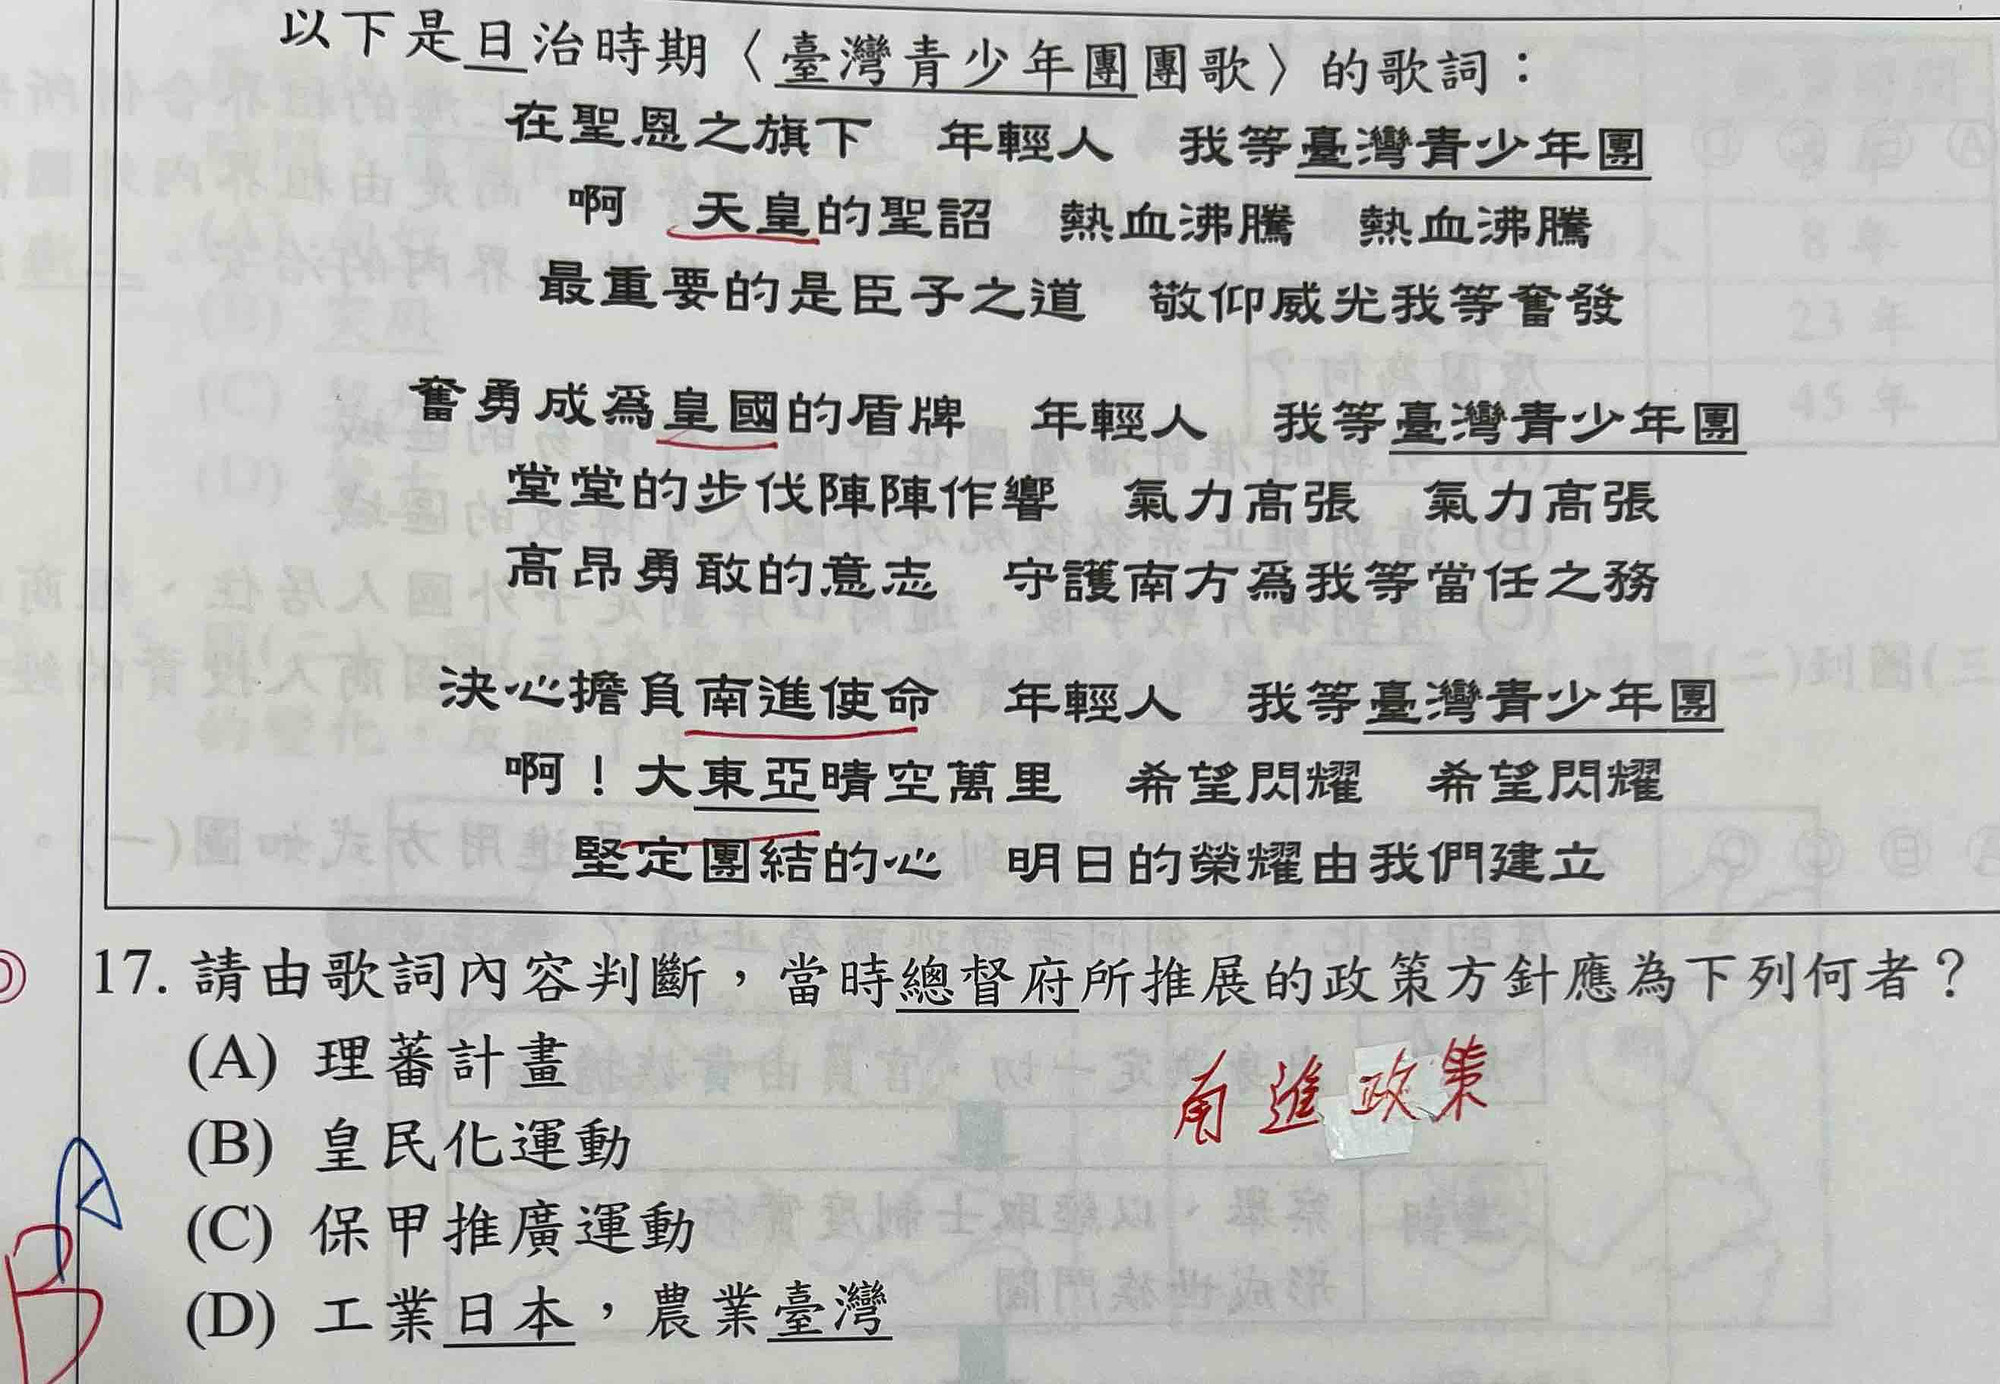 以下是日治時期〈臺灣青少年團團歌〉的歌詞：
在聖恩之旗下　年輕人　我等臺灣青少年團
啊　天皇的聖詔　熱血沸騰　熱血沸騰
最重要的是臣子之道　敬仰威光我等奮發
奮勇成為皇國的盾牌　年輕人　我等臺灣青少年團
堂堂的步伐陣陣作響　氣力高張　氣力高張
高昂勇敢的意志　守護南方為我等當任之務
決心擔負南進使命　年輕人　我等臺灣青少年團
啊！大東亞晴空萬里　希望閃耀　希望閃耀
堅定團結的心　明日的榮耀由我們建立
17. 請由歌詞內容判斷，當時總督府所推展的政策方針應為下列何者？
(A) 理蕃計畫
南進政策
(B) 皇民化運動
A
(C) 保甲推廣運動
B
(D) 工業日本，農業臺灣